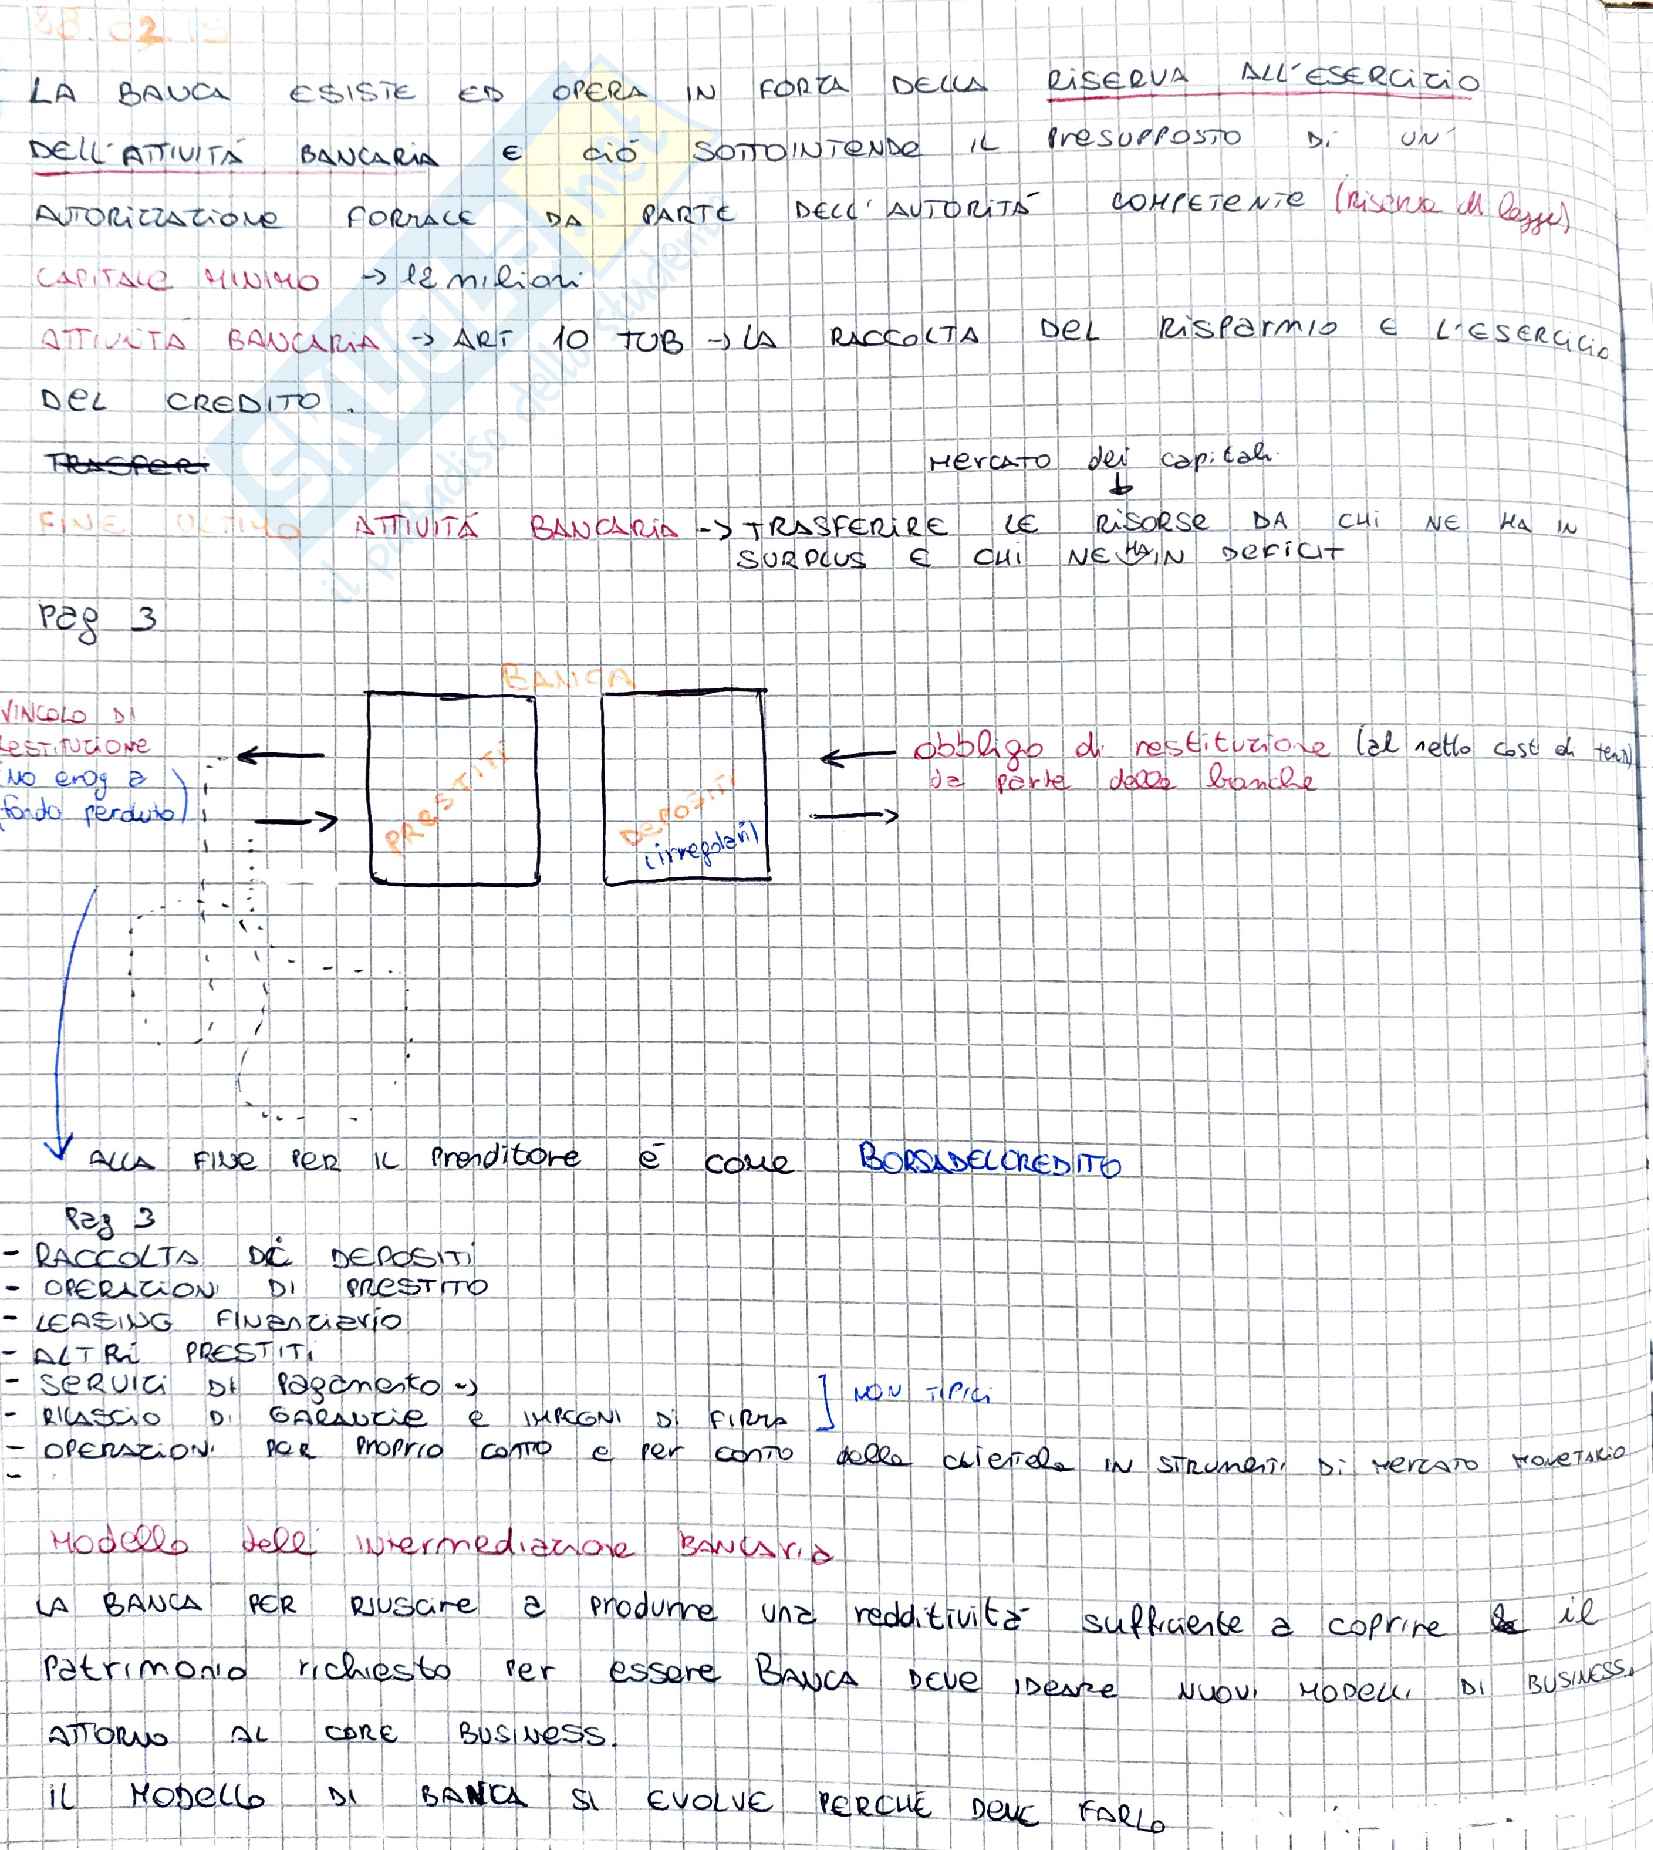 LA BANCA ESISTE ED OPERA IN FORZA DELLA RISERVA ALL'ESERCIZIO
DELL'ATTIVITÁ BANCARIA E CIÓ SOTTOINTENDE IL PRESUPPOSTO DI UN'
AUTORIZZAZIONE FORMALE DA PARTE DELL'AUTORITÁ COMPETENTE (riserva di legge)
CAPITALE MINIMO -> 12 milioni
ATTIVITÁ BANCARIA -> ART 10 TUB -> LA RACCOLTA DEL RISPARMIO E L'ESERCIZIO
DEL CREDITO.
TRASFERI
MERCATO dei capitali
FINE ULTIMO ATTIVITÁ BANCARIA -> TRASFERIRE LE RISORSE DA CHI NE HA IN
SURPLUS E CHI NE HA IN DEFICIT
pag 3
BANCA
VINCOLO DI
RESTITUZIONE
(NO erog a
fondo perduto)
PRESTITI
DEPOSITI
(irregolari)
obbligo di restituzione (al netto costi di
da parte delle banche
ALLA FINE PER IL Prenditore é come BORSADELCREDITO
Pag 3
- RACCOLTA DI DEPOSITI
- OPERAZIONI DI PRESTITO
- LEASING FINanziario
- ALTRI PRESTITI
- SERVIZI DI Pagamento ->
- RILASCIO DI GARANZIE E IMPEGNI DI FIRMA
NON TIPICI
- OPERAZIONI PER PROPRIO CONTO E PER CONTO della clientela IN STRUMENTI DI MERCATO MONETARIO
-
Modello dell'intermediazione BANCARIA
LA BANCA PER RIUSCIRE a produrre una redditivitá sufficiente a coprire il
Patrimonio richiesto per essere BANCA DEVE IDEARE NUOVI MODELLI DI BUSINESS
ATTORNO AL CORE BUSINESS.
IL MODELLO DI BANCA SI EVOLVE PERCHÉ DEVE FARLO
SKUOLA.net
il paradiso dello studente